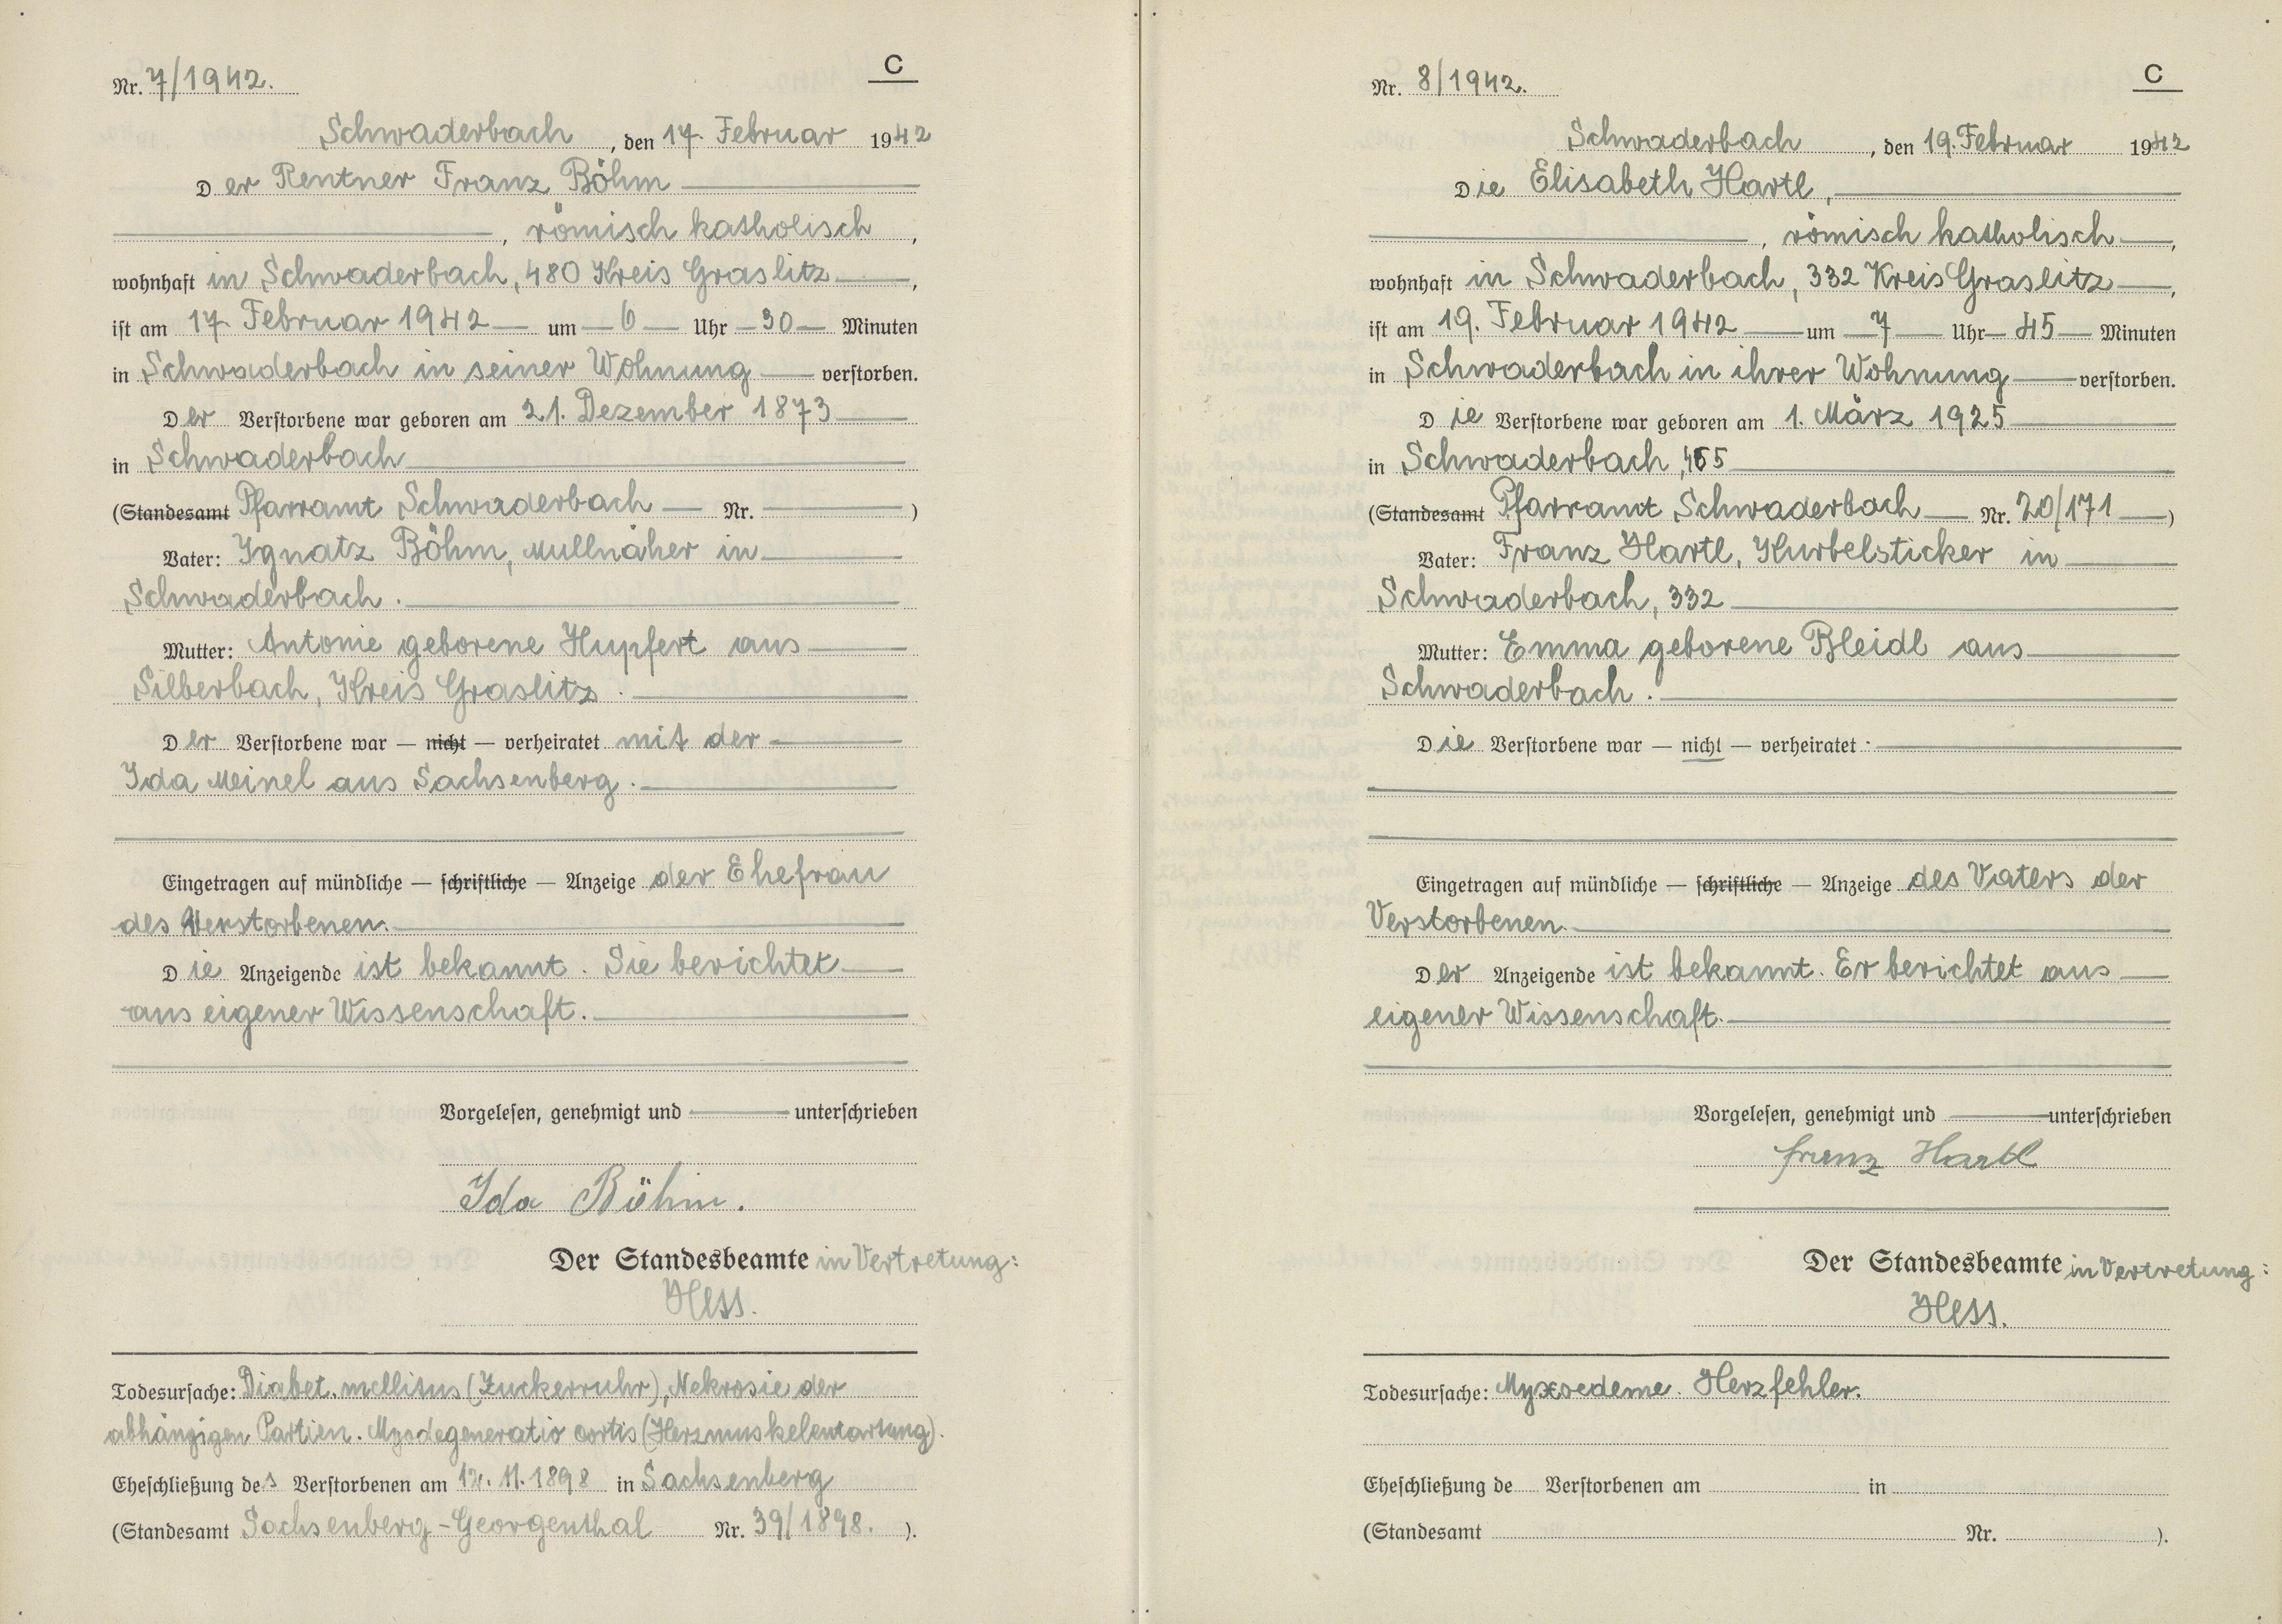 C
Nr. 7/1942.
Schwaderbach, den 17. Februar 1942
Der Rentner Franz Böhm
, römisch katholisch,
wohnhaft in Schwaderbach, 480 Kreis Graslitz,
ist am 17. Februar 1942 um 6 Uhr 30 Minuten
in Schwaderbach in seiner Wohnung verstorben.
Der Verstorbene war geboren am 21. Dezember 1873
in Schwaderbach
(Standesamt Pfarramt Schwaderbach Nr. )
Vater: Ignatz Böhm, Mullnäher in
Schwaderbach.
Mutter: Antonie geborene Hupfert aus
Silberbach, Kreis Graslitz.
Der Verstorbene war — nicht — verheiratet mit der
Ida Meinel aus Sachsenberg.
Eingetragen auf mündliche — schriftliche — Anzeige der Ehefrau
des Verstorbenen.
Die Anzeigende ist bekannt. Sie berichtet
aus eigener Wissenschaft.
Vorgelesen, genehmigt und unterschrieben
Ida Böhm.
Der Standesbeamte in Vertretung:
Hess.
Todesursache: Diabet. mellitus (Zuckerruhr), Nekrosie der
abhängigen Partien. Myodegeneratio cortis (Herzmuskelentartung).
Eheschließung des Verstorbenen am 12. 11. 1898 in Sachsenberg
(Standesamt Sachsenberg-Georgenthal Nr. 39/1898. ).
C
Nr. 8/1942.
Schwaderbach, den 19. Februar 1942
Die Elisabeth Hartl,
, römisch katholisch,
wohnhaft in Schwaderbach, 332 Kreis Graslitz,
ist am 19. Februar 1942 um 7 Uhr 45 Minuten
in Schwaderbach in ihrer Wohnung verstorben.
Die Verstorbene war geboren am 1. März 1925
in Schwaderbach,
(Standesamt Pfarramt Schwaderbach Nr. 20/171)
Vater: Franz Hartl, Kurbelsticker in
Schwaderbach, 332
Mutter: Emma geborene Bleidl aus
Schwaderbach.
Die Verstorbene war — nicht — verheiratet.
Eingetragen auf mündliche — schriftliche — Anzeige des Vaters der
Verstorbenen.
Der Anzeigende ist bekannt. Er berichtet aus
eigener Wissenschaft.
Vorgelesen, genehmigt und unterschrieben
Franz Hartl
Der Standesbeamte in Vertretung:
Hess.
Todesursache: Myxoedeme. Herzfehler.
Eheschließung de Verstorbenen am in
(Standesamt Nr. ).